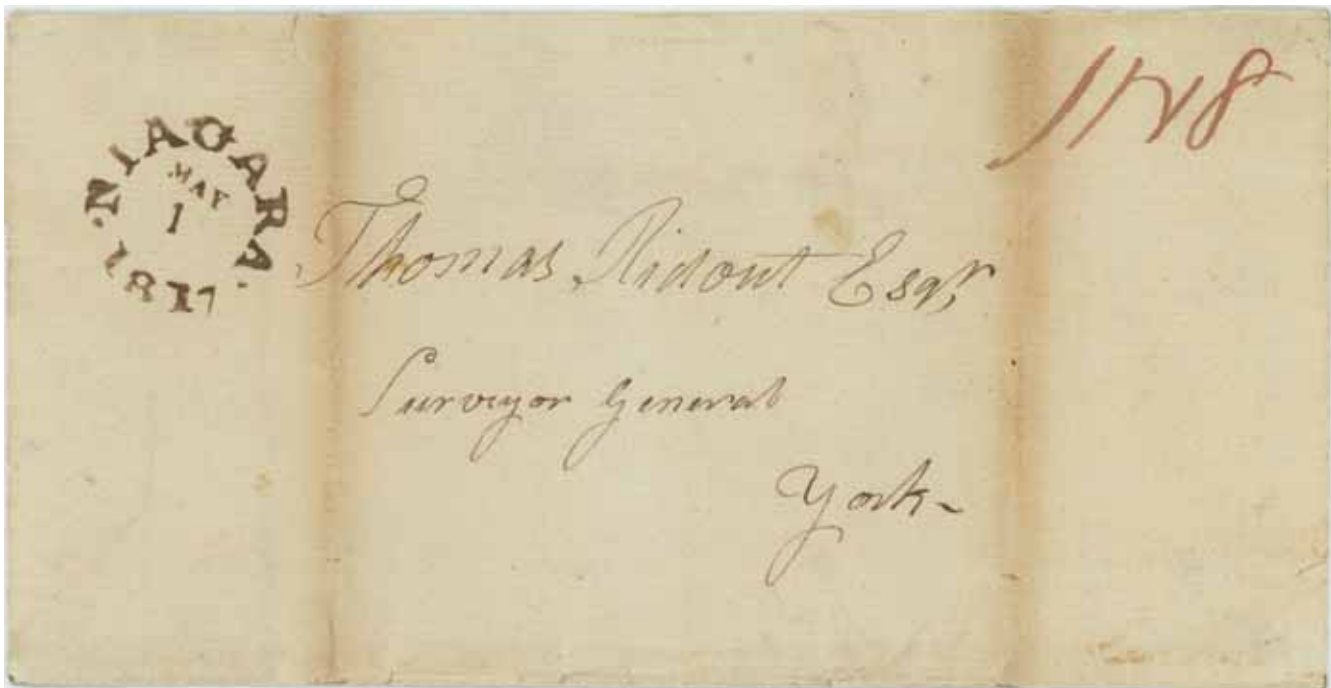 NIAGARA
MAY
1
1817
1/N8
Thomas Ridout Esqr
Surveyor General
York